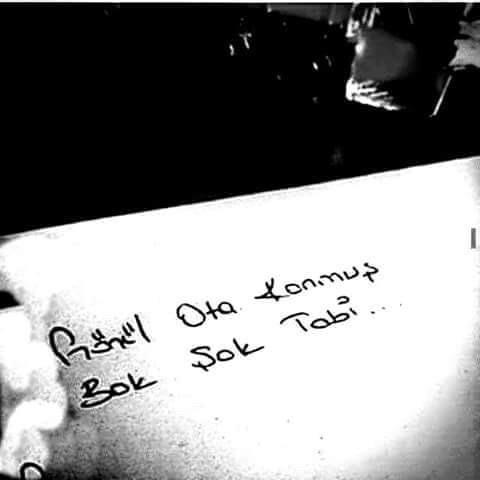 Gönül Ota Konmuş
Bok Şok Tabî...